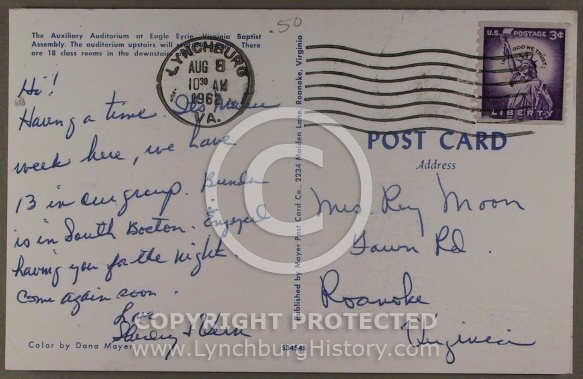 .50
The Auxiliary Auditorium at Eagle Eyrie, Virginia Baptist
Assembly. The auditorium upstairs will There
are 18 class rooms in the downstairs
LYNCHBURG
AUG 8
10 30 AM
1962
VA.
U.S. POSTAGE 3¢
IN GOD WE TRUST
LIBERTY
Hi!
Having a time.
week here, we have
13 in our group.
is in South Boston. Enjoyed
having you for the night.
Come again soon.
Love
Color by Dana Mayer
Published by Mayer Post Card Co., 2234 Maiden Lane, Roanoke, Virginia
S34545
POST CARD
Address
Mrs. Roy Moon
Fawn Rd.
Roanoke
Virginia
C
COPYRIGHT PROTECTED
www.LynchburgHistory.com